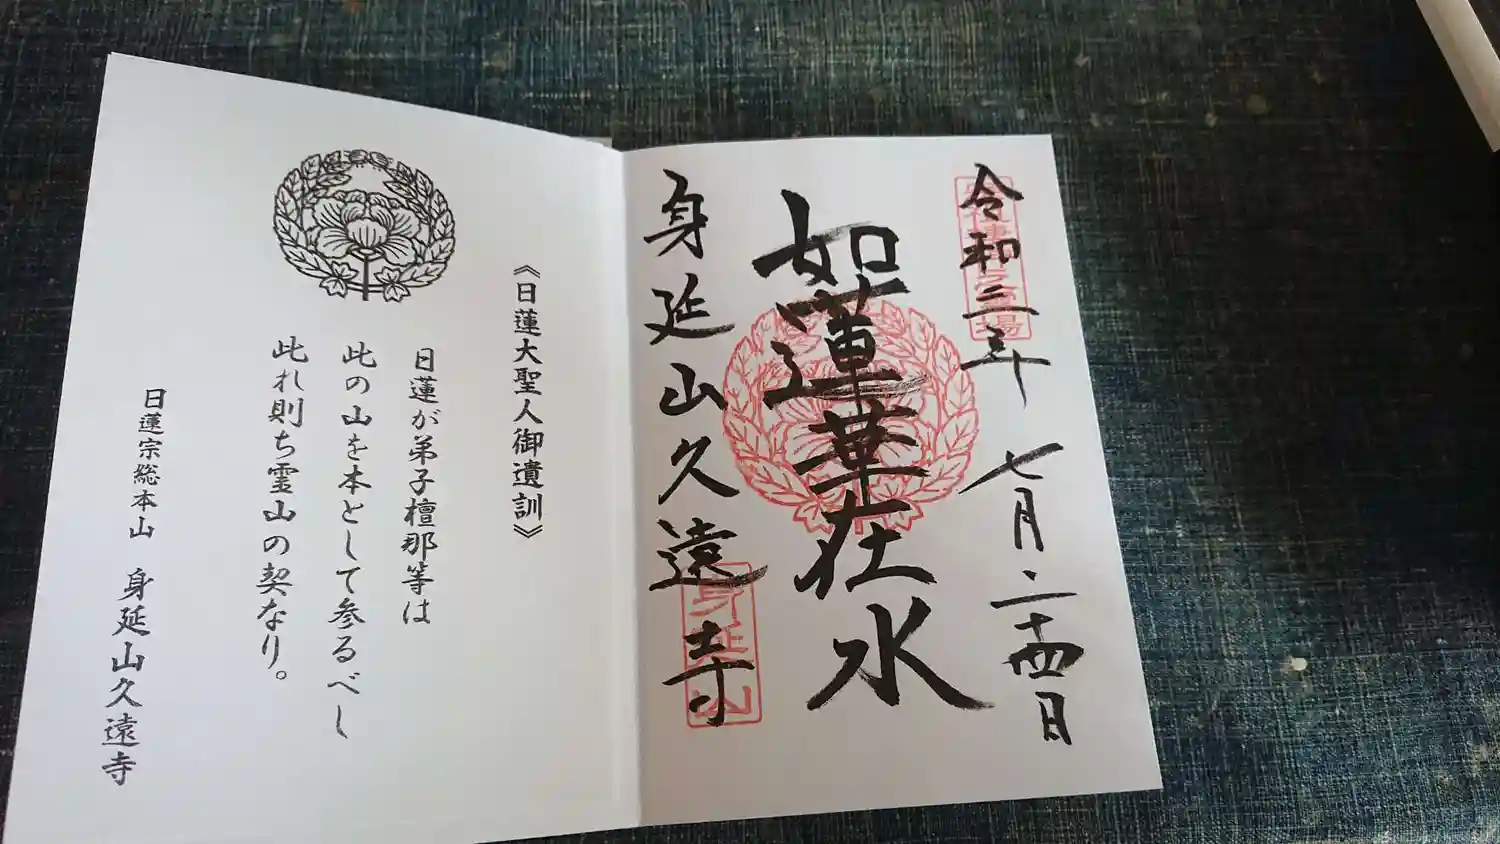 令和三年 七月二十四日
如蓮華在水
身延山久遠寺
身延山
《日蓮大聖人御遺訓》
日蓮が弟子檀那等は
此の山を本として参るべし
此れ則ち霊山の契なり。
日蓮宗総本山 身延山久遠寺